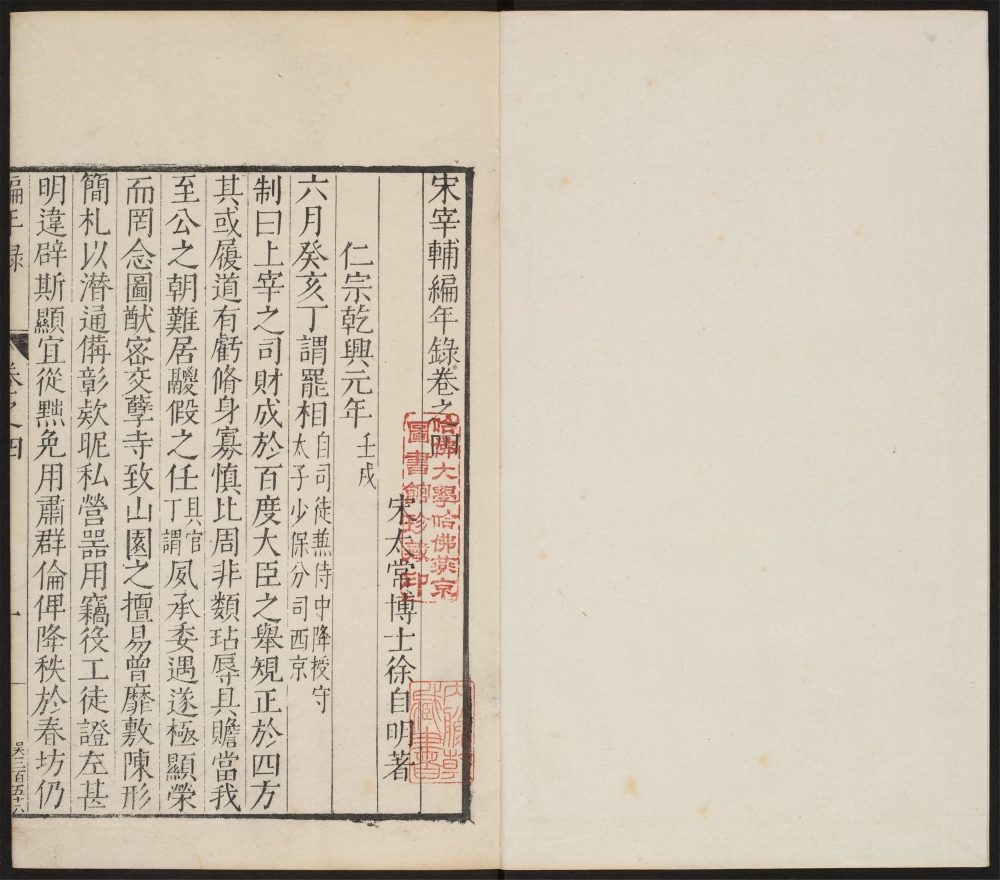 宋宰輔編年錄卷之四
宋太常博士徐自明著
仁宗乾興元年壬戌
六月癸亥丁謂罷相自司徒兼侍中降授守太子少保分司西京
制曰上宰之司財成於百度大臣之舉規正於四方
其或履道有虧脩身寡慎比周非類玷辱具瞻當我
至公之朝難居髎假之任具官丁謂夙承委遇遂極顯榮
而罔念圖猷密交孽寺致山園之擅易曾靡敷陳形
簡札以潛通備彰欸昵私營器用竊役工徒證左甚
明違辟斯顯宜從黜免用肅群倫俾降秩於春坊仍
編年錄
卷之四
一
吳三百五十六
哈佛大學哈佛燕京
圖書館珍藏印